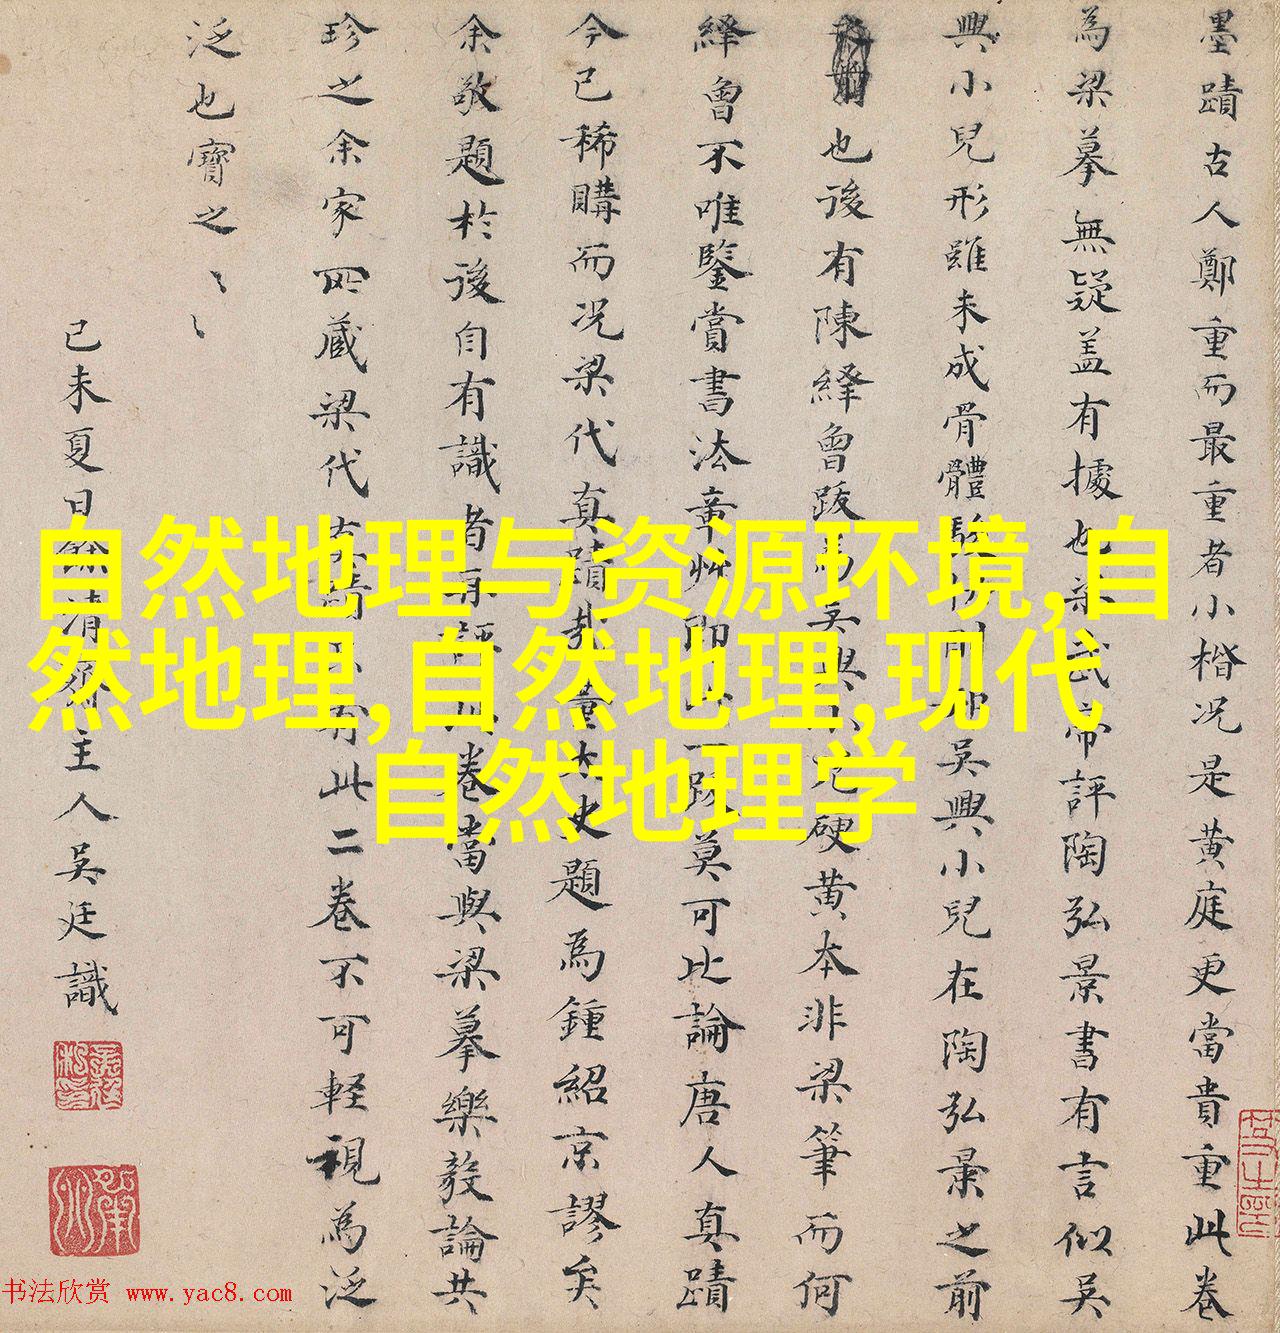 墨蹟古人鄭重而最重者小楷况是黄庭更當貴重此卷
為梁摹無疑盖有據也梁武帝評陶弘景書有言似吳
興小兒形雖未成骨體吳興小兒在陶弘景之前
也後有陳繹曾跋為吳興小兒硬黄本非梁筆而何
繹曾不唯鑒賞書法章艸即此一跋莫可比論唐人真蹟
今已稀購而况梁代真蹟哉董太史題為鍾紹京謬矣
余敬題於後自有識者再評此卷當與梁摹樂毅論共
珍之余家所藏梁代真蹟有此二卷不可軽視為泛
泛也寶之〻〻
己未夏日餘清齋主人吳廷識
自然地理与资源环境,自
然地理,自然地理,现代
自然地理学
书法欣赏 www.yac8.com